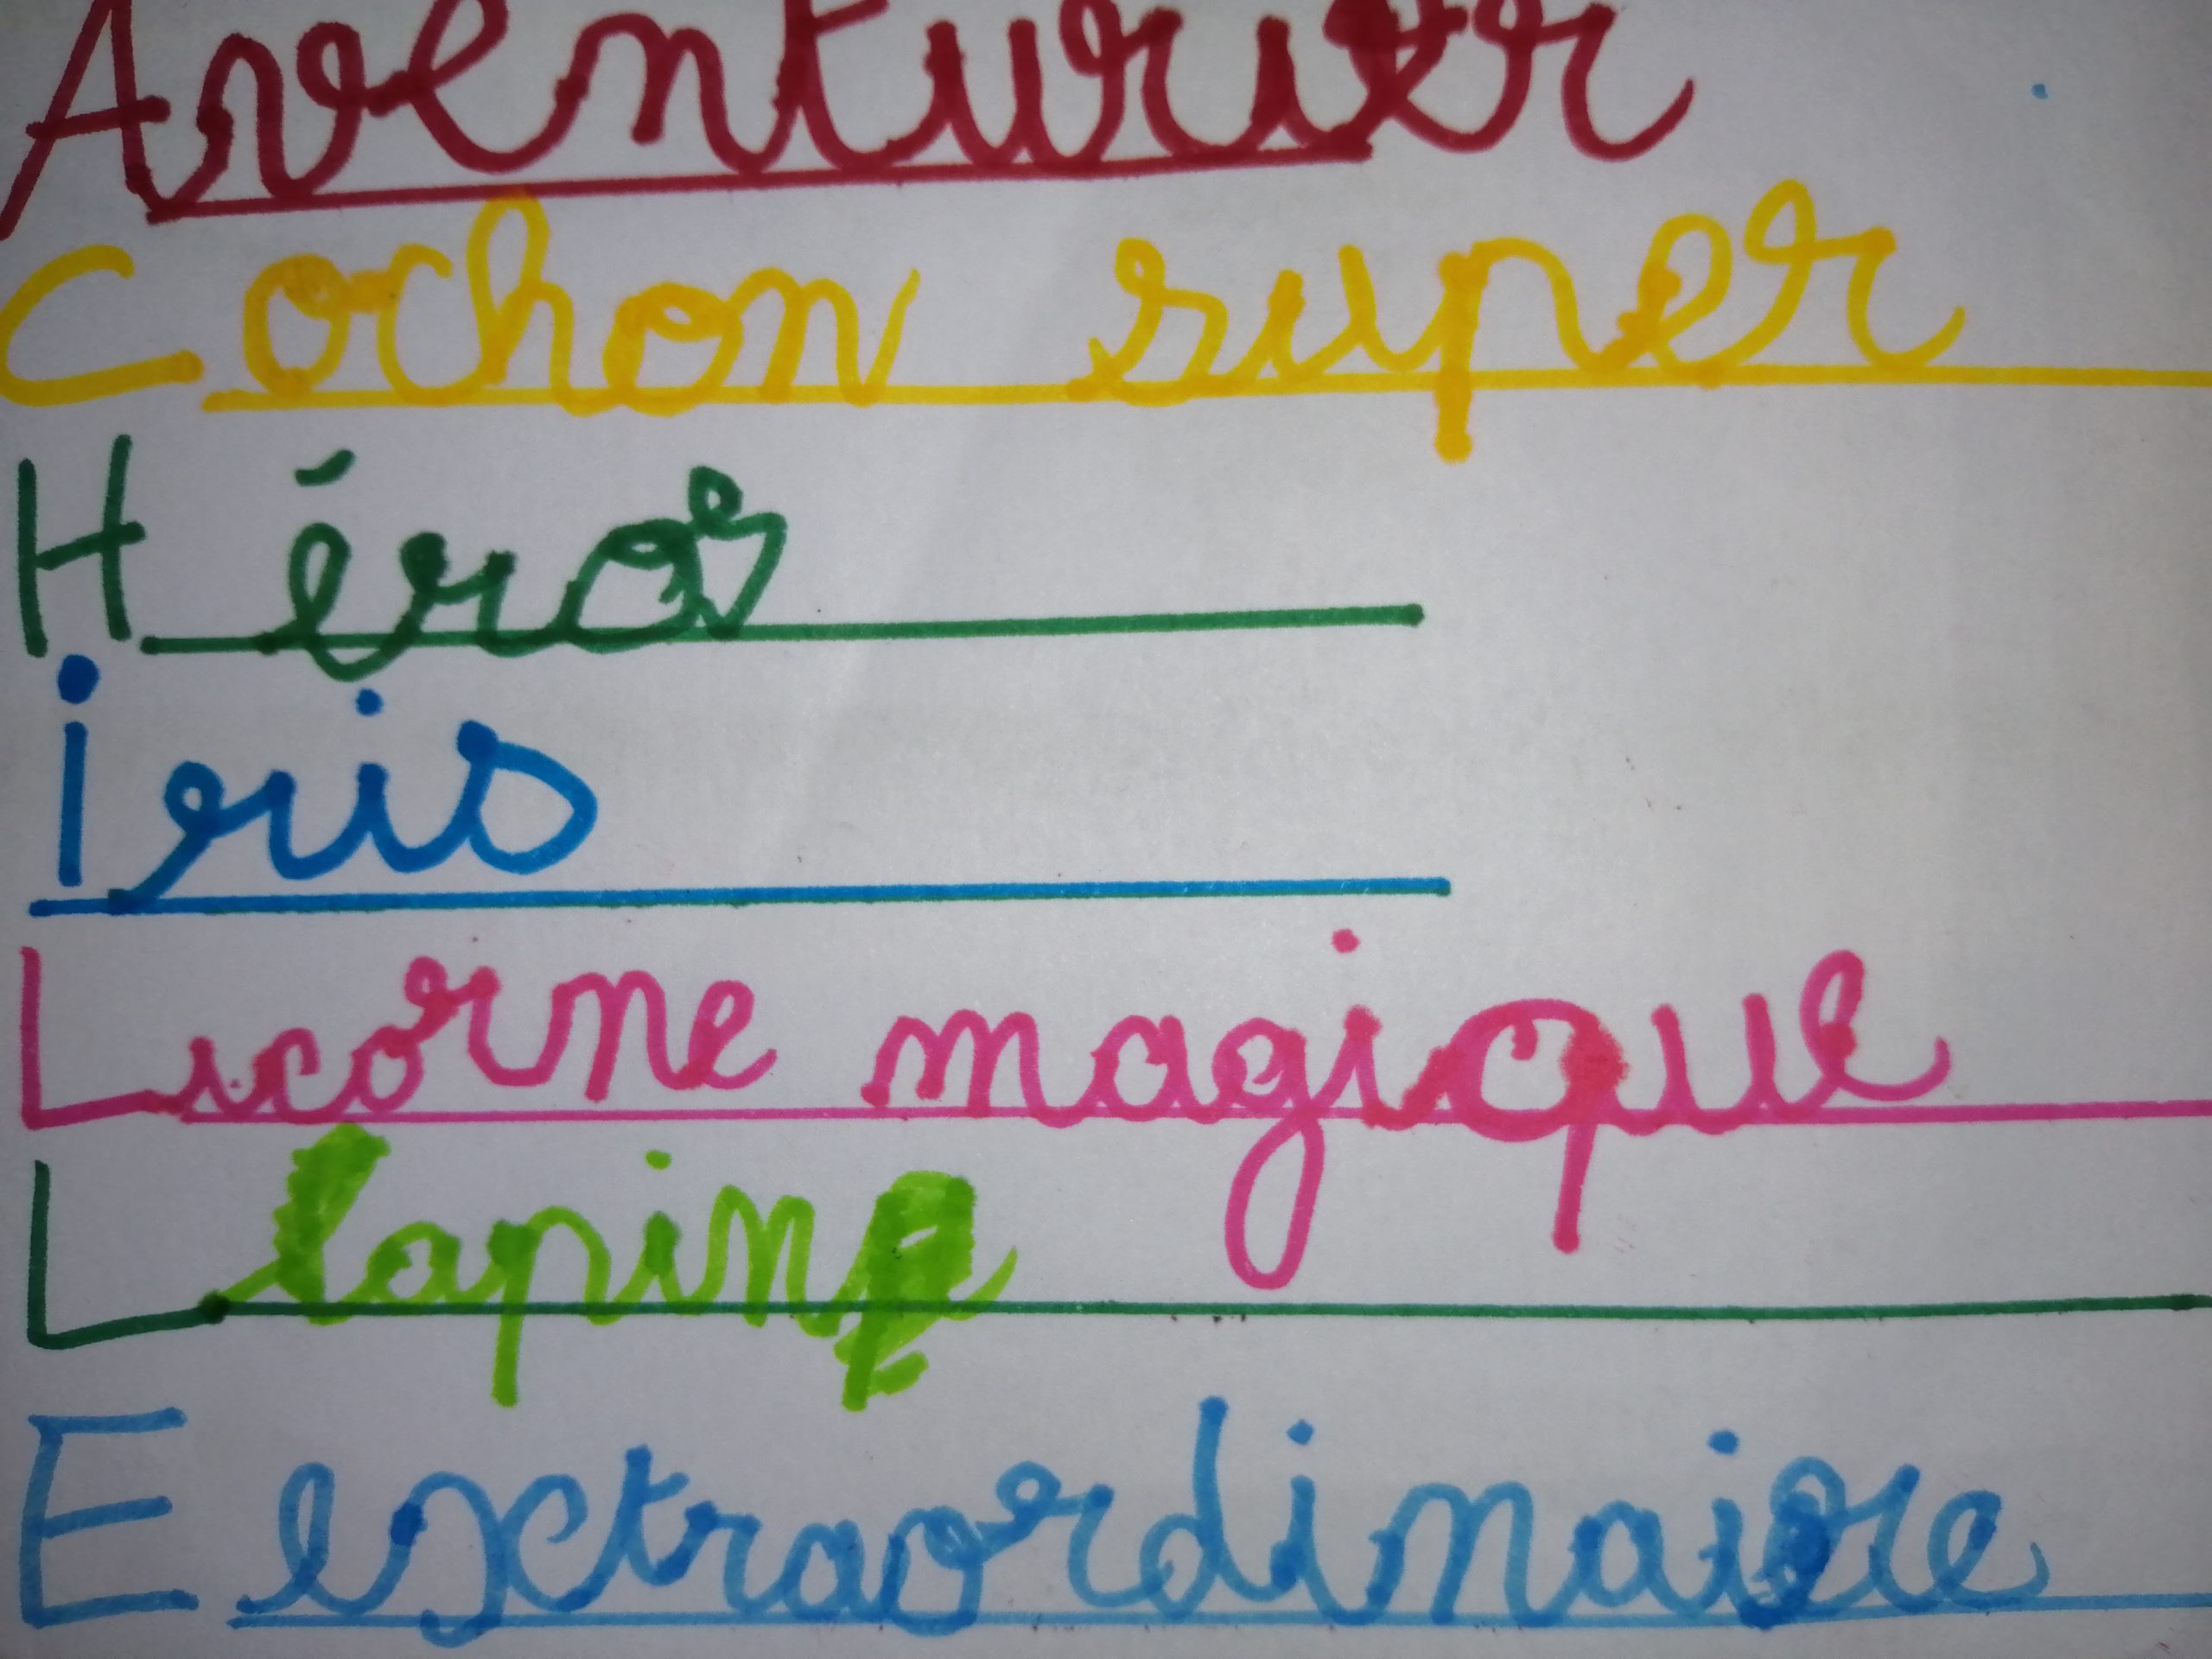 Aventurier
Cochon super
Héros
iris
Licorne magique
L lapin
E extraordinaire